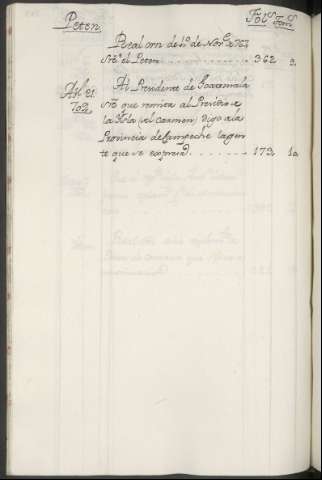 Peten. Fol.s Tom.s
Real orn de 10 de Nov.e 
Sre. el Peten 362. 2.
Ab.l 21. Al Presidente de Goatemala
702. Sre. que remita al Presidio de
la Ysla del Carmen, digo a la
Provincia de Campeche la gen-
te que se expresa. 173. 10.